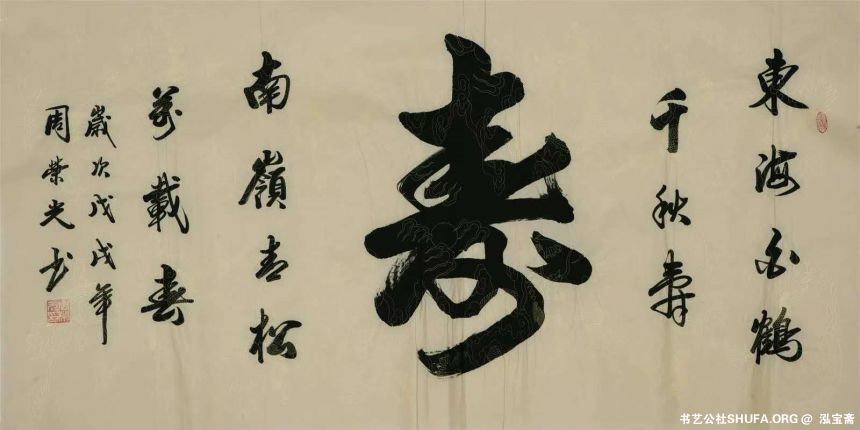 東海白鶴
千秋壽
寿
南嶺青松
萬載春
歲次戊戌年
周榮光书
书艺公社SHUFA.ORG @ 泓宝斋